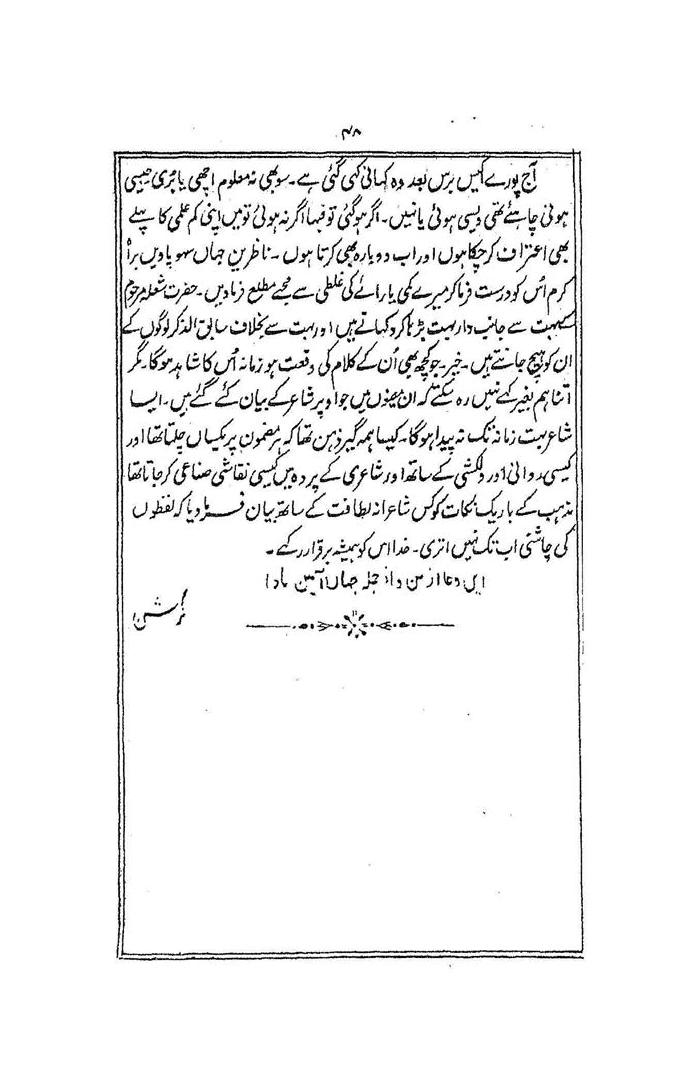 ۴۸
آج پورے کیس برس بعد وہ کہانی کہی گئی ہے۔ سو بھی نہ معلوم اچھی یا بُری جیسی
ہونی چاہئے تھی ویسی ہوئی یا نہیں۔ اگر ہو گئی تو فبہا اگر نہ ہوئی تو میں اپنی کم علمی کا پہلے
بھی اعتراف کر چکا ہوں اور اب دوبارہ بھی کرتا ہوں۔ ناظرین جہاں سہو پاویں براہ
کرم اُس کو درست فرما کر میرے کمی یا رائے کی غلطی سے مجھے مطلع فرماویں۔ حضرت شعلہ مرحوم
کے بہت سے جانب دار بہت بڑھا کر دکھاتے ہیں اور بہت سے بخلاف سابق الذکر لوگوں کے
ان کو ہیچ جانتے ہیں۔ خیر۔ جو کچھ بھی اُن کے کلام کی وقعت ہو زمانہ اُس کا شاہد ہوگا۔ مگر
اتنا ہم بغیر کہے نہیں رہ سکتے کہ ان میں جو اوپر شاعر کے بیان کئے گئے ہیں۔ ایسا
شاعر بہت زمانہ تک نہ پیدا ہوگا۔ کیسا ہمہ گیر ذہن تھا کہ ہر مضمون پر یکساں چلتا تھا اور
کیسی روانی اور دلکشی کے ساتھ اور شاعری کے پردہ میں کیسی نقاشی صناعی کر جاتا تھا
مذہب کے باریک نکات کو کس شاعرانہ لطافت کے ساتھ بیان فرما دیا کہ لفظوں
کی چاشنی اب تک نہیں اتری۔ خدا اس کو ہمیشہ برقرار رکھے۔
ایں دعا از من و از جملہ جہاں آمین باد